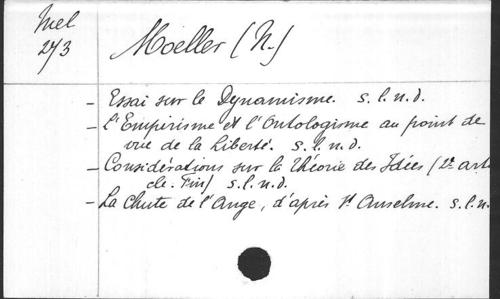 Mel
273
Moeller (N.)
- Essai sur le Dynamisme. s.l.n.d.
- L'Empirisme et l'Ontologisme au point de
vue de la Liberté. s.l.n.d.
- Considérations sur la Théorie des Idées (2e art
cle. Fin) s.l.n.d.
- La Chute de l'Ange, d'après St Anselme. s.l.n.